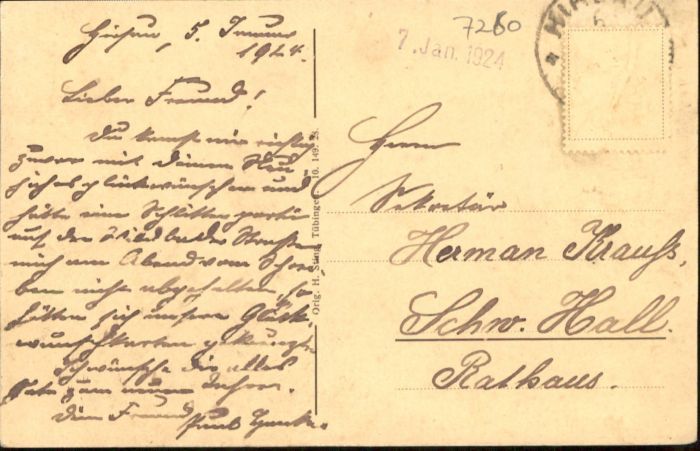 Hirsau, 5. Januar
1924.
Lieber Freund!
Du kamst mir richtig
zuvor mit Deinen Neu
jahrsglückwünschen und
hätte eine Schlittenpartie
auf der Wildbader Strasse
mich am Abend vom Schrei
ben nicht abgehalten, so
hätten sich unsere Glück
wunschkarten gekreuzt.
Ich wünsche Dir alles
Gute zum neuen Jahre.
Dein Freund
Paul
7260
7. Jan. 1924
HIRSAU
Orig. H. Sting, Tübingen. 10. 149
Herrn
Sekretär
Herman Krauss,
Schw. Hall.
Rathaus.